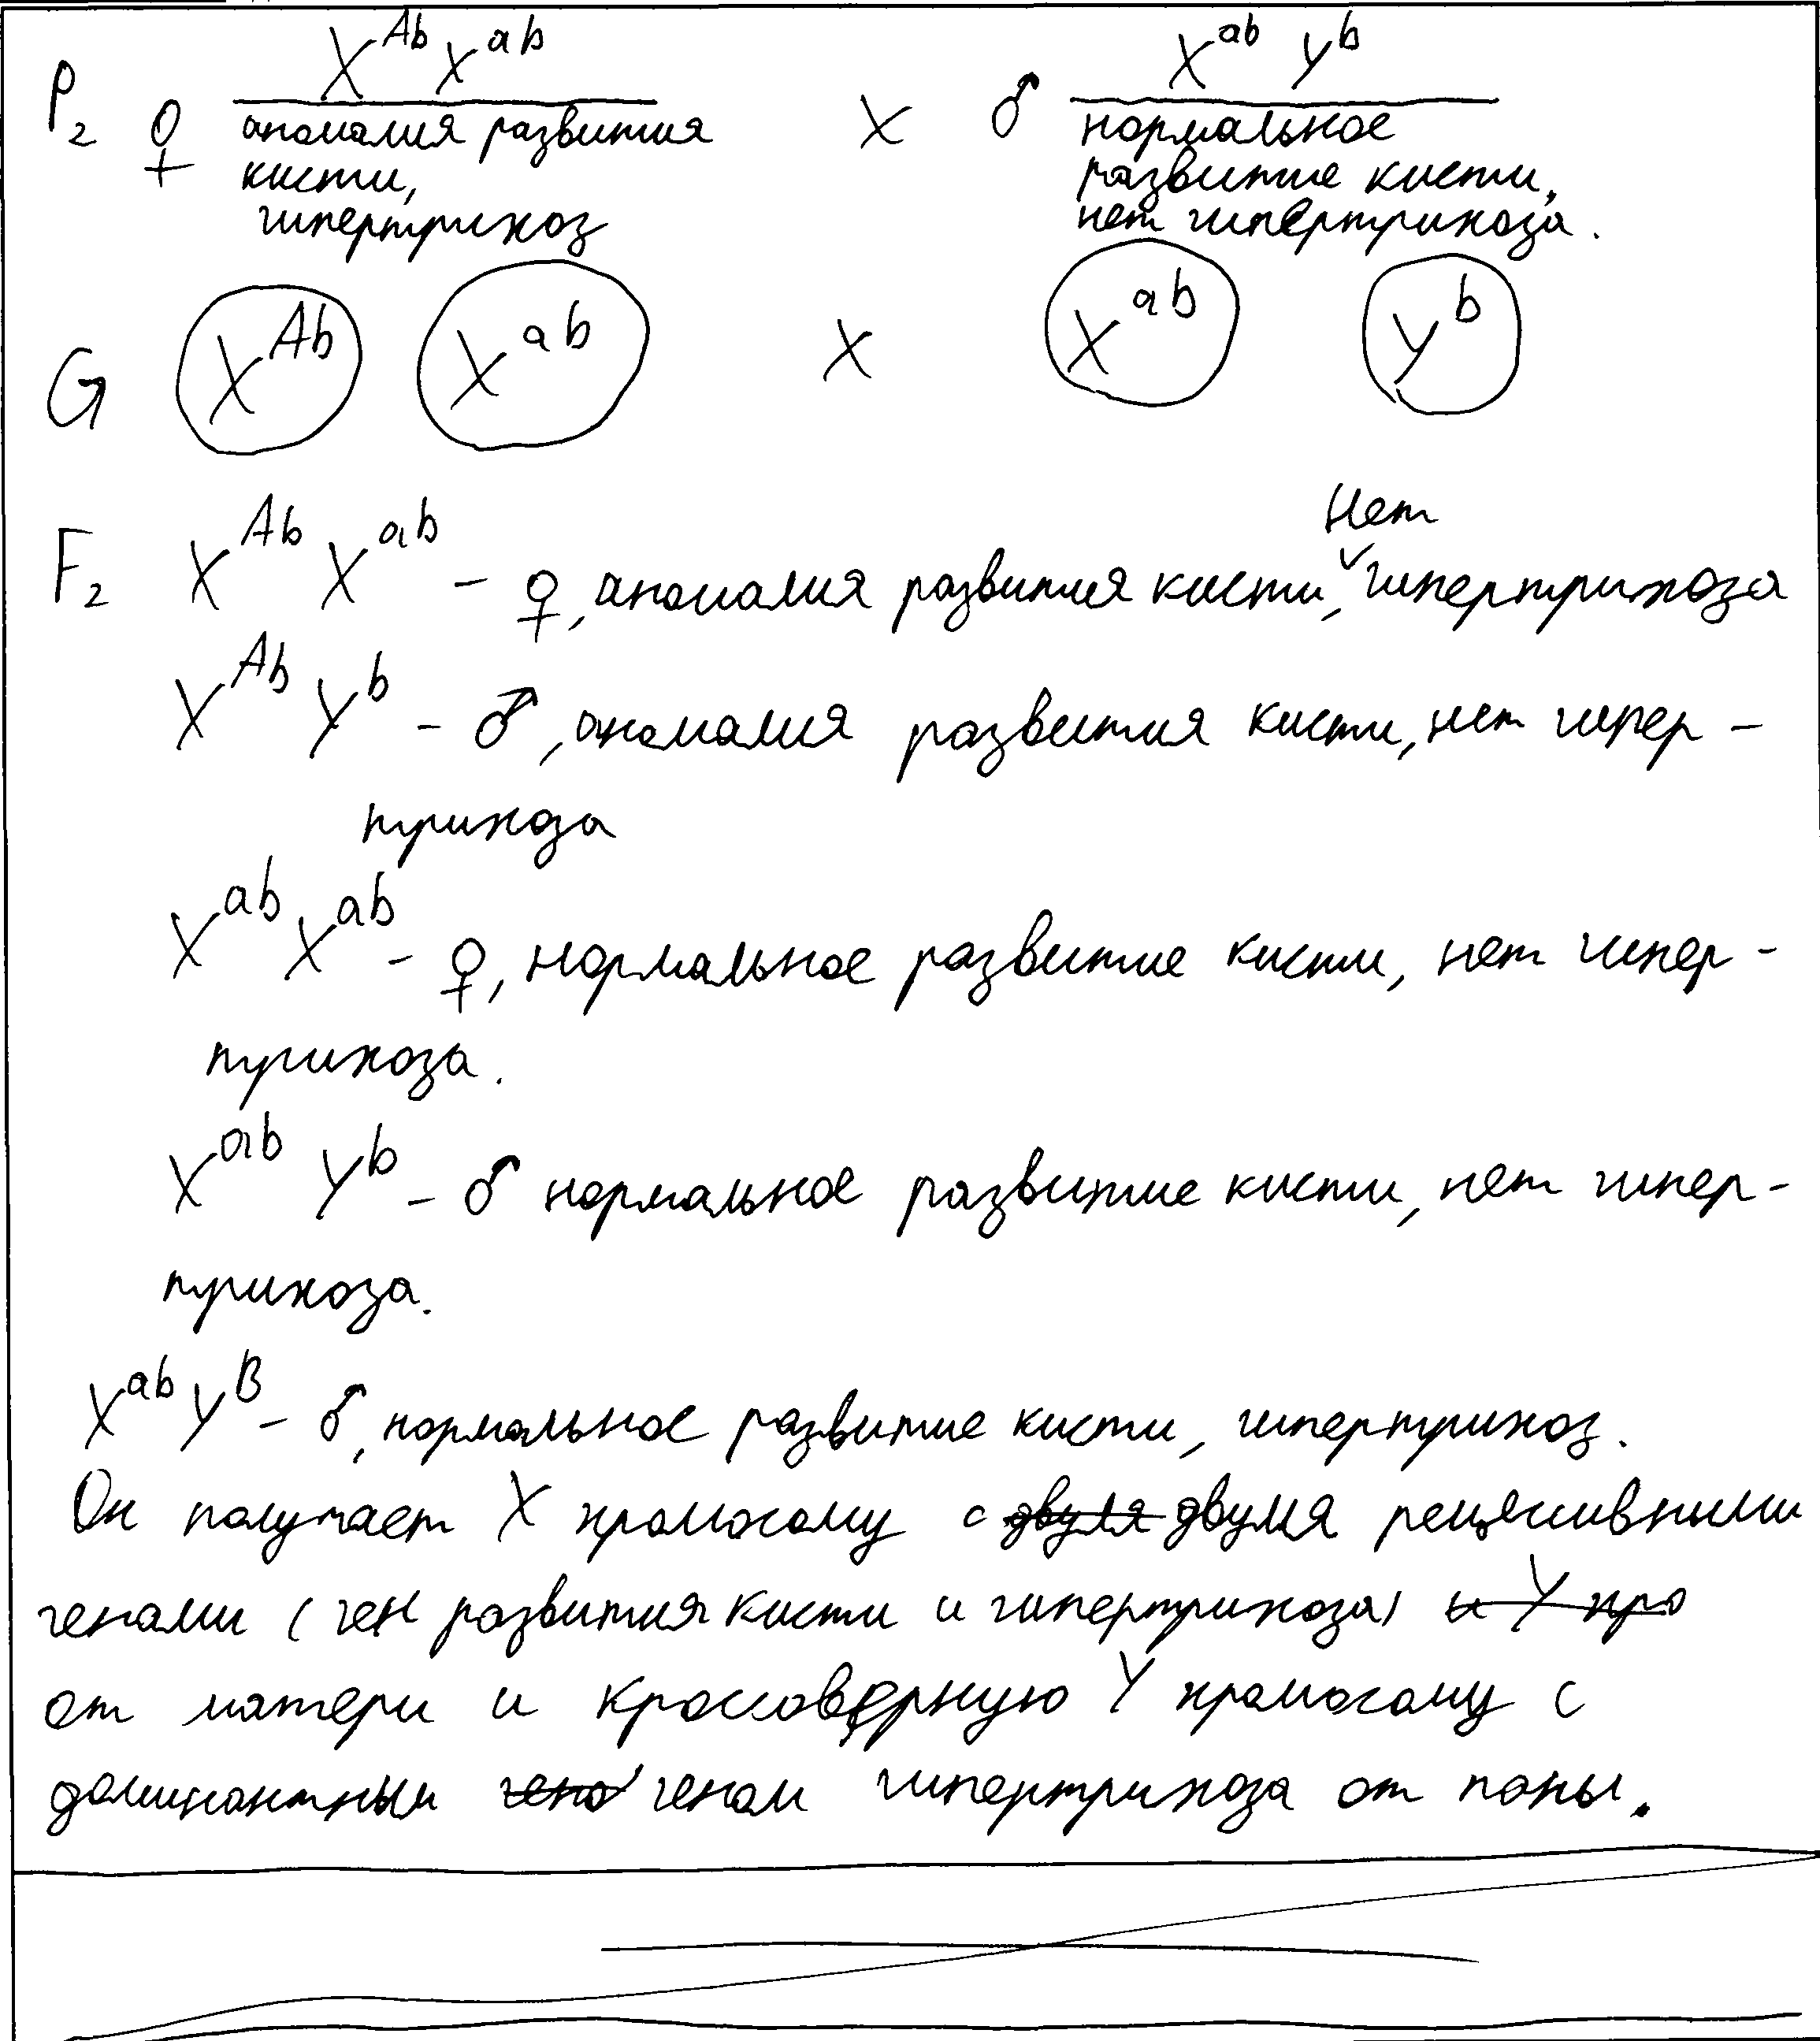 X^Ab X^ab X^ab Y^b
P₂ ♀ аномалия развития X ♂ нормальное
кисти, развитие кисти,
гипертрихоз нет гипертрихоза.
G X^Ab X^ab X X^ab Y^b
Нет
F₂ X^Ab X^ab - ♀, аномалия развития кисти, ˅гипертрихоза
X^Ab Y^b - ♂, аномалия развития кисти, нет гипер-
трихоза
X^ab X^ab - ♀, нормальное развитие кисти, нет гипер-
трихоза.
X^ab Y^b - ♂ нормальное развитие кисти, нет гипер-
трихоза.
X^ab Y^B - ♂, нормальное развитие кисти, гипертрихоз.
Он получает X хромосому с двумя двумя рецессивными
генами (ген развития кисти и гипертрихоза) и Y хро
от матери и кроссоверную Y хромосому с
доминантным гено геном гипертрихоза от папы.